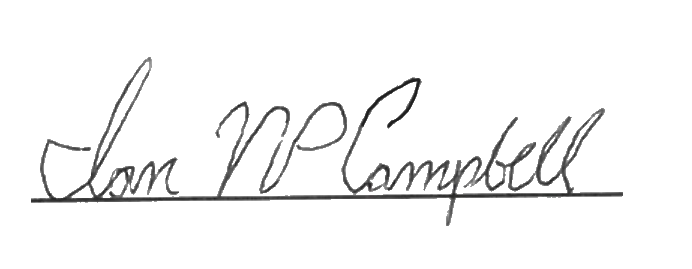 Ian NP Campbell